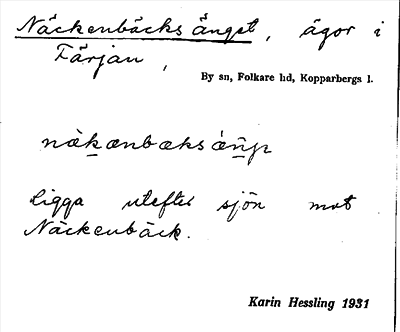 Näckenbäcks ängst, ägor i
Färjan,
By sn, Folkare hd, Kopparbergs l.
ligga utefter sjön mot
Näckenbäck.
Karin Hessling 1931